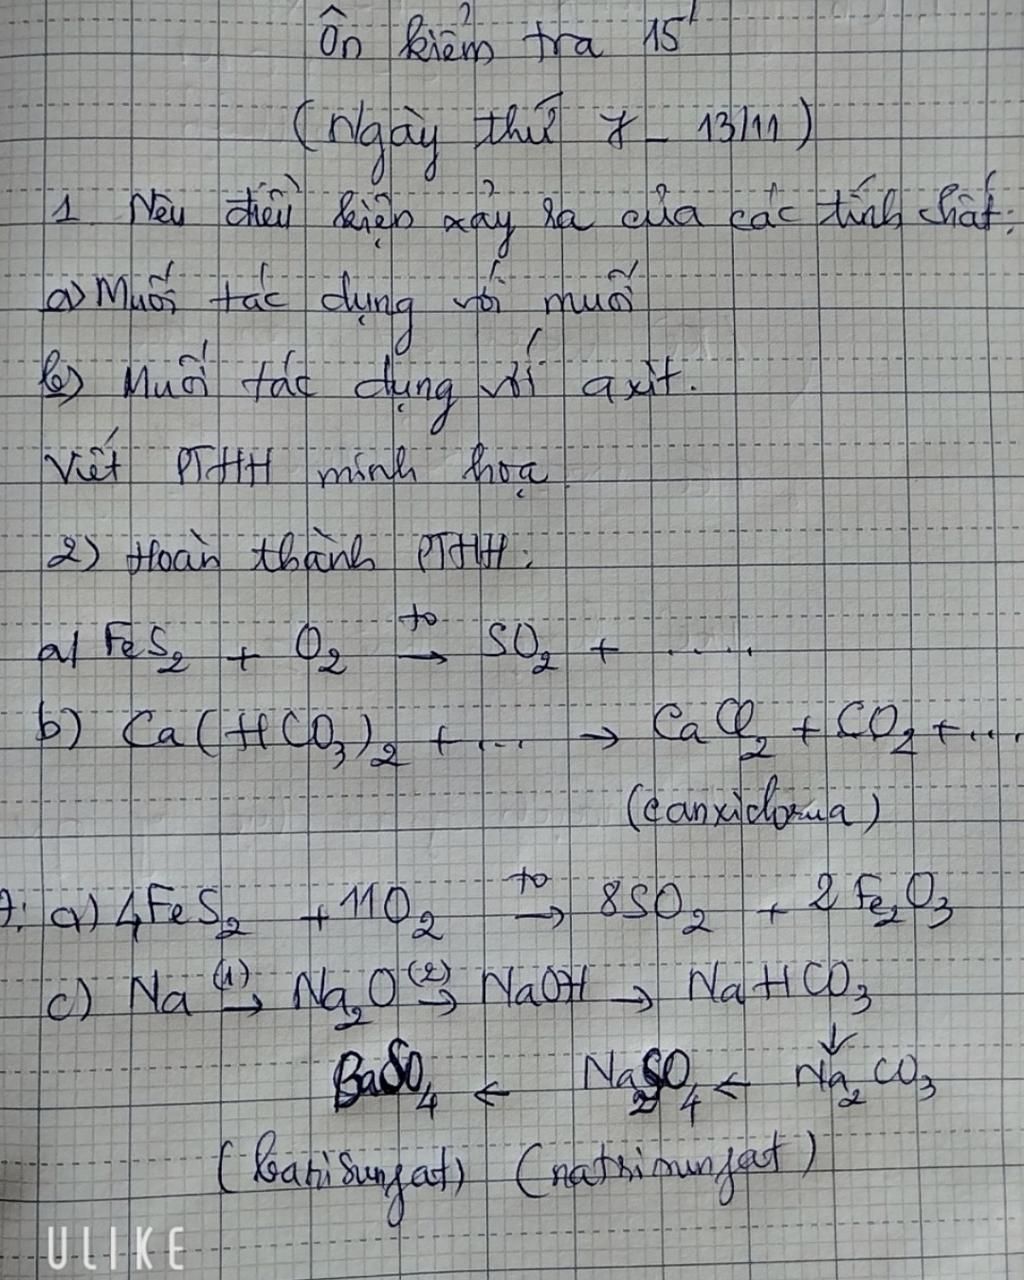 Ôn kiểm tra 15'
(Ngày thứ 7 - 13/11)
1 Nêu điều kiện xảy ra của các tính chất:
a) Muối tác dụng với muối
b) Muối tác dụng với axit.
Viết PTHH minh hoạ
2) Hoàn thành PTHH:
a) FeS₂ + O₂ →(to) SO₂ + .....
b) Ca(HCO₃)₂ + .... → CaCl₂ + CO₂ + ....
(canxiclorua)
a) 4FeS₂ + 11O₂ →(to) 8SO₂ + 2Fe₂O₃
c) Na →(1) Na₂O →(2) NaOH → NaHCO₃
↓
BaSO₄ ← Na₂SO₄ ← Na₂CO₃
(barisunfat) (natrimunfat)
ULIKE